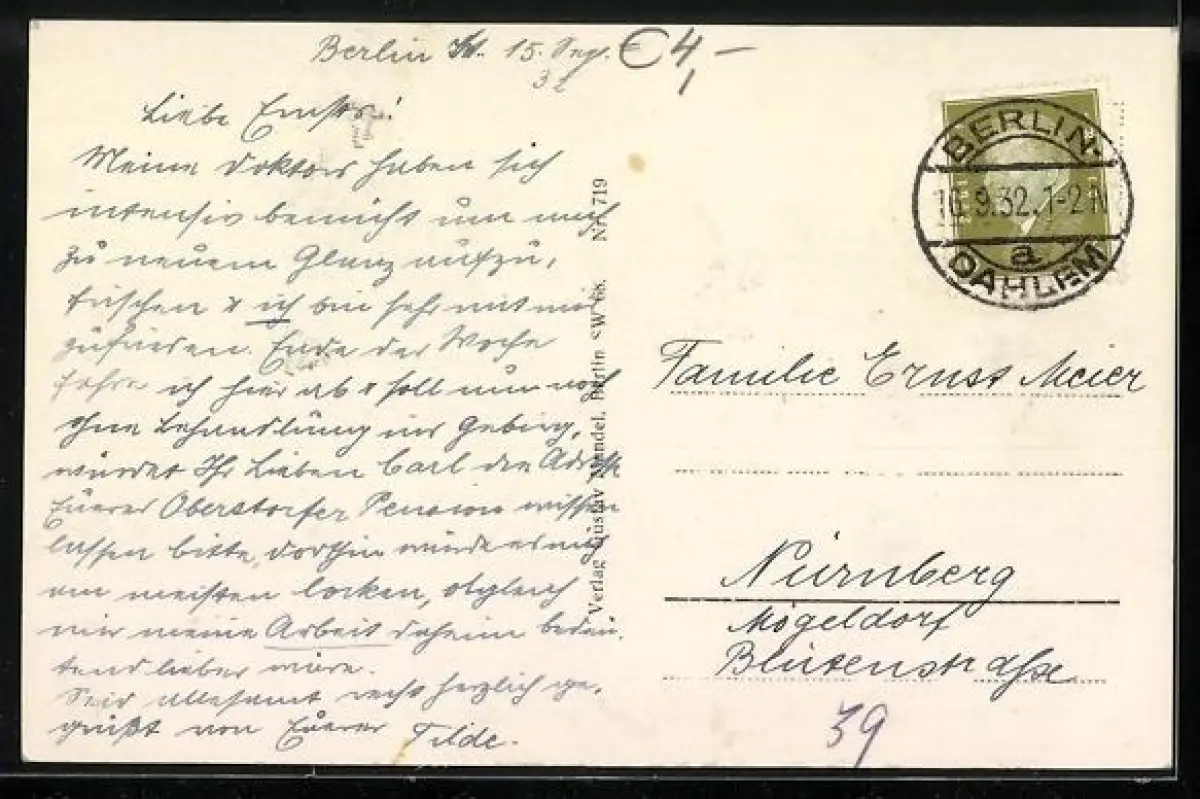 Berlin W. 15. Sep.
32
€ 4,-
Liebe Ernsts!
Meine Doktors haben sich
intensiv bemüht um mich
zu neuem Glanz aufzu,
frischen & ich bin sehr mit mir
zufrieden. Ende der Woche
fahre ich hier ab & soll nun noch
ohne Behandlung ins Gebirg,
würdet Ihr Lieben Carl die Adresse
Euerer Oberstorfer Pension wissen
lassen bitte, dorthin würde es mich
am meisten locken, obgleich
mir meine Arbeit daheim bedeu,
tend lieber wäre.
Seid allesamt recht herzlich ge,
grüßt von Euerer Tilde.
Verlag Gustav Mandel, Berlin SW 68. Nr. 719
BERLIN-
9.32.1-2N
a
DAHLEM
Familie Ernst Meier
Nürnberg
Mögeldorf
Blütenstraße
39